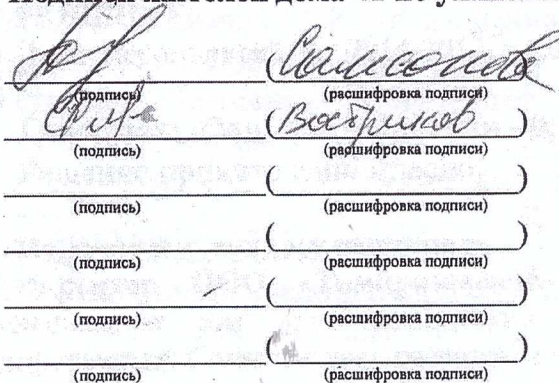 Подписи жителей дома
(Самсонова)
(подпись) (расшифровка подписи)
(Востриков)
(подпись) (расшифровка подписи)
( )
(подпись) (расшифровка подписи)
( )
(подпись) (расшифровка подписи)
( )
(подпись) (расшифровка подписи)
( )
(подпись) (расшифровка подписи)